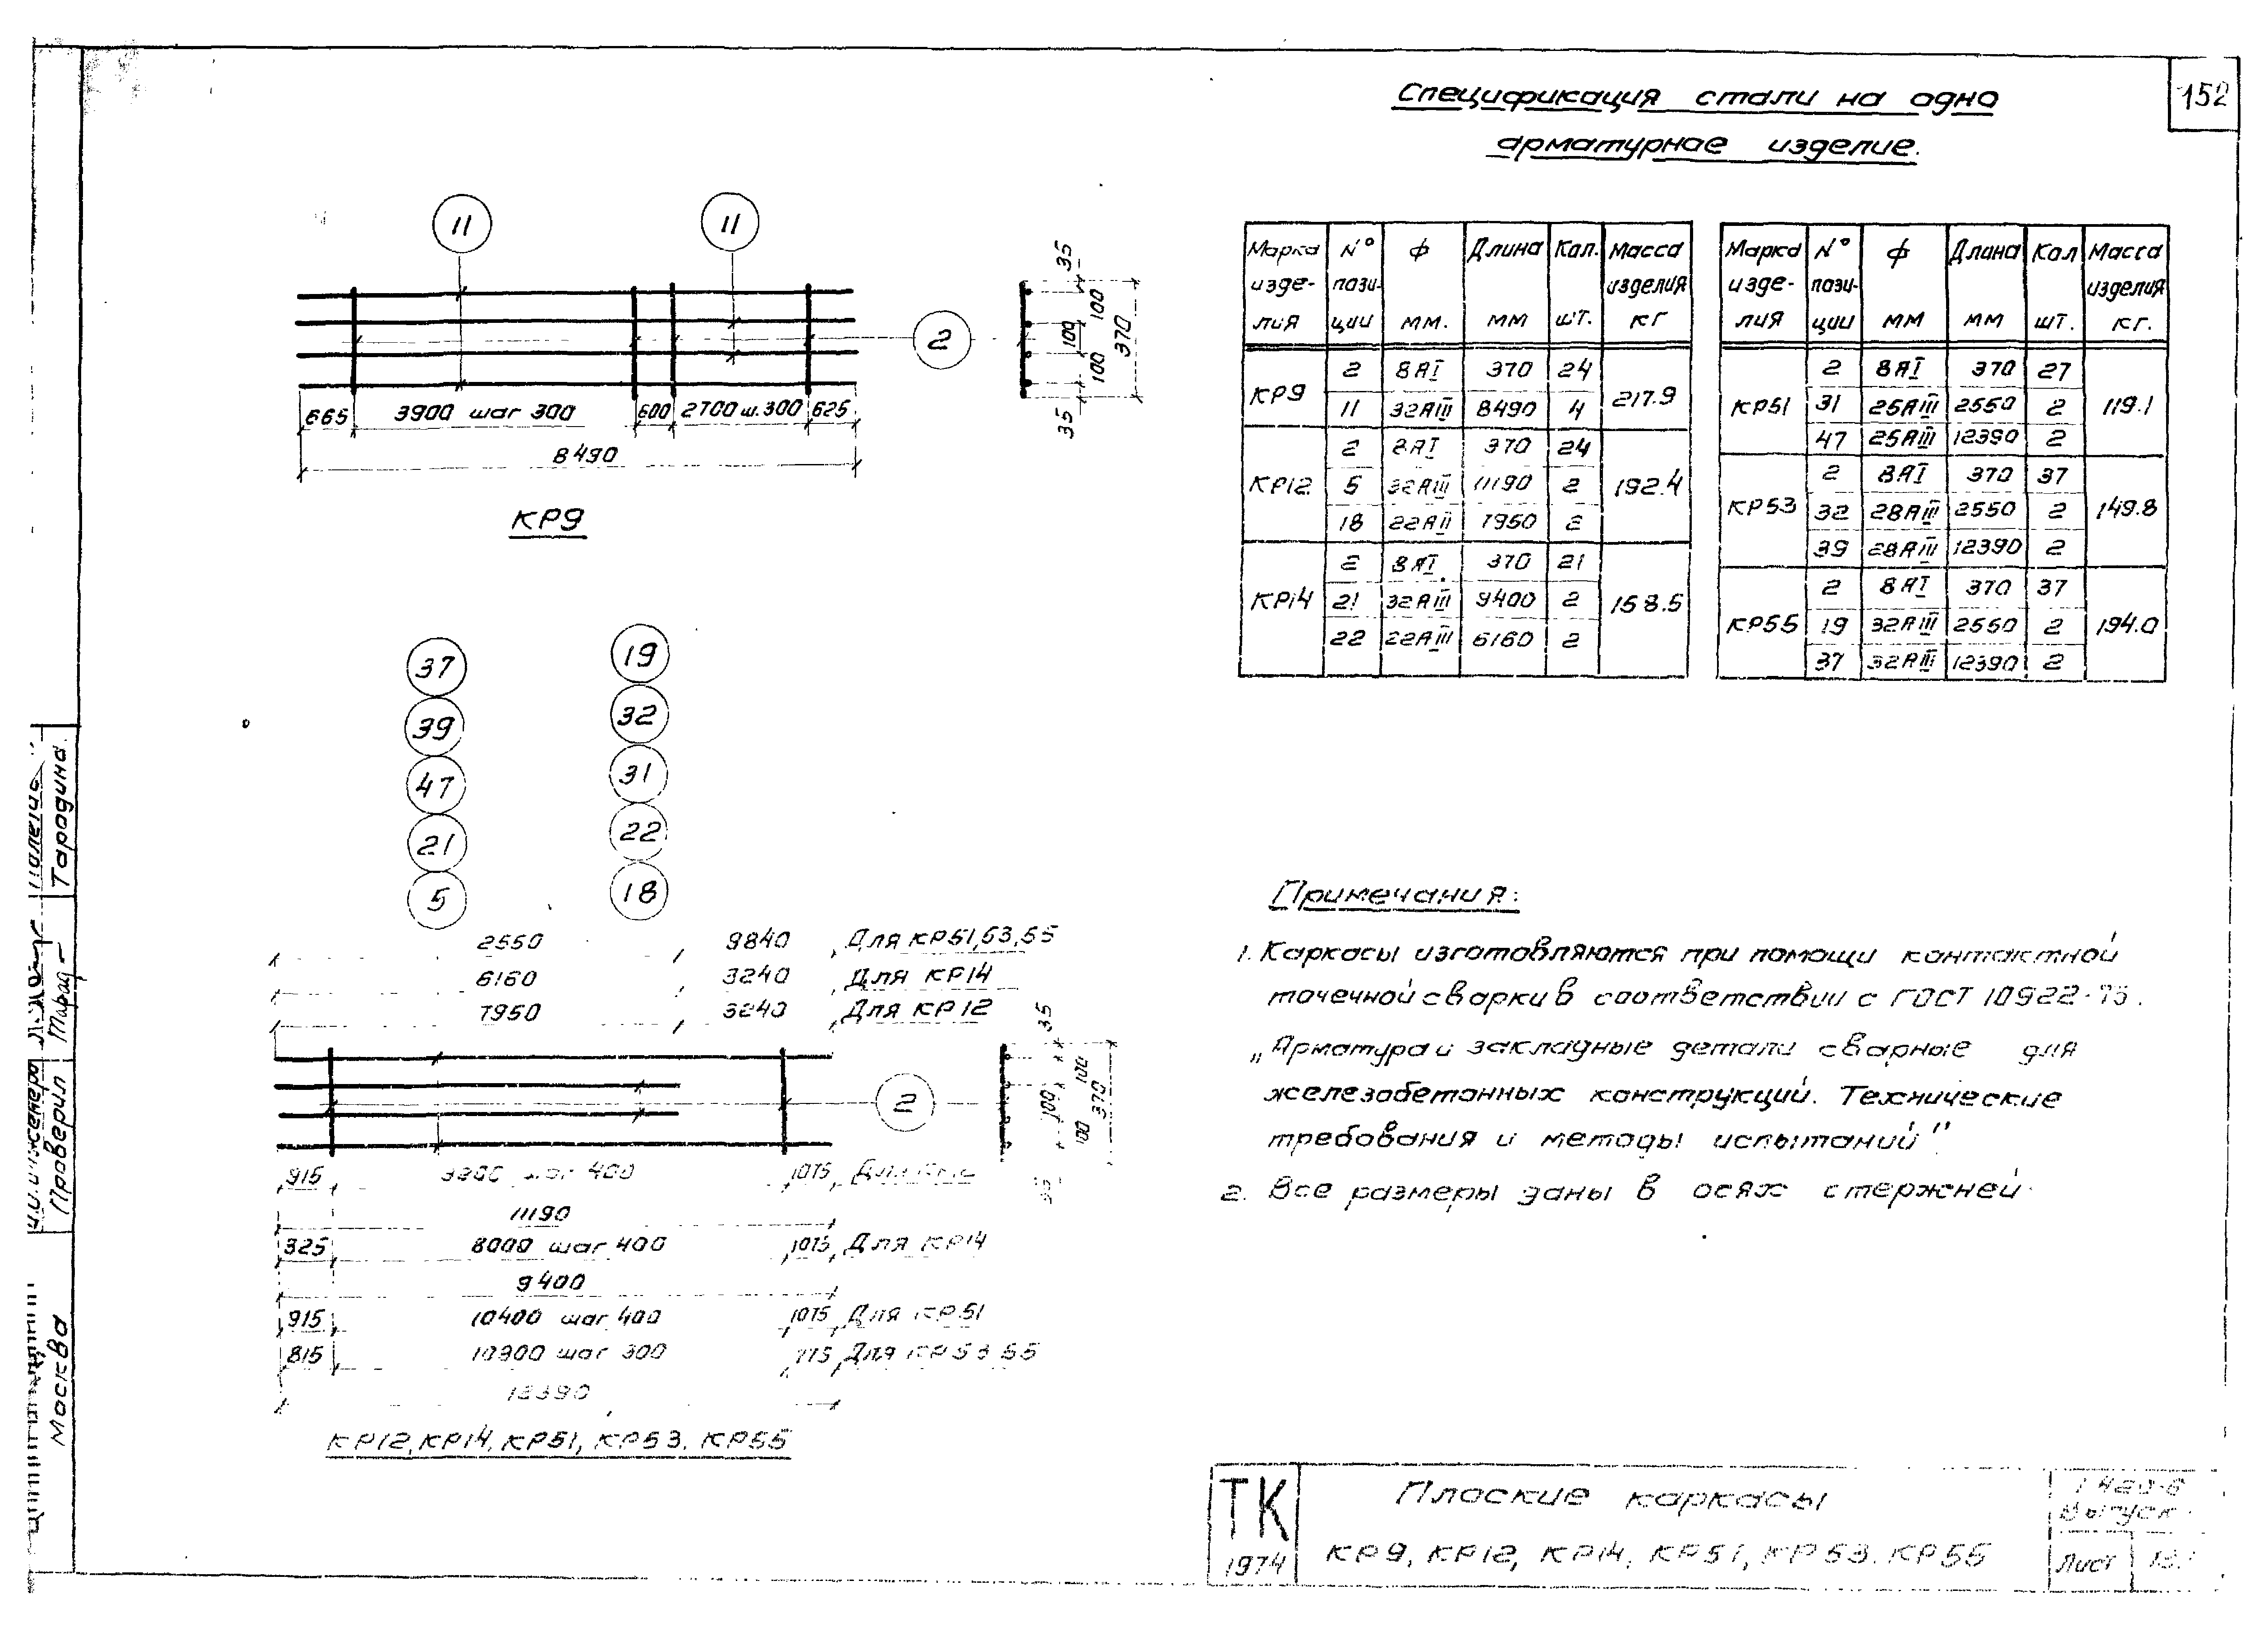 152
Спецификация стали на одно
арматурное изделие.
11 11
2
35
100
100
100
35
370
665 3900 шаг 300 600 2700 ш.300 625
8490
КР9
Марка изделия N° позиции ф мм. Длина мм Кол. шт. Масса изделия кг
КР9 2 8АI 370 24 217.9
11 32АIII 8490 4
КР12 2 8АI 370 24 192.4
5 32АIII 11190 2
18 22АII 7950 2
КР14 2 8АI 370 21 158.5
21 32АIII 9400 2
22 22АIII 6160 2
Марка изделия N° позиции ф мм Длина мм Кол шт. Масса изделия кг.
КР51 2 8АI 370 27 119.1
31 25АIII 2550 2
47 25АIII 12390 2
КР53 2 8АI 370 37 149.8
32 28АIII 2550 2
39 28АIII 12390 2
КР55 2 8АI 370 37 194.0
19 32АIII 2550 2
37 32АIII 12390 2
37 19
39 32
47 31
21 22
5 18
2550 9840 Для КР51,53,55
6160 3240 Для КР14
7950 3240 Для КР12
2
35
100
100
100
370
915 шаг 400 1075
11190
325 8000 шаг 400 1075 Для КР14
9400
915 10400 шаг 400 1075 Для КР51
815 шаг 300 Для КР53 55
12390
КР12, КР14, КР51, КР53. КР55
Примечания:
1. Каркасы изготовляются при помощи контактной
точечной сварки в соответствии с ГОСТ 10922-75.
„Арматура и закладные детали сварные для
железобетонных конструкций. Технические
требования и методы испытаний"
2. Все размеры даны в осях стержней.
Тарадина
Проверил
Москва
ТК
1974
Плоские каркасы
КР9, КР12, КР14, КР51, КР53. КР55
Выпуск
Лист